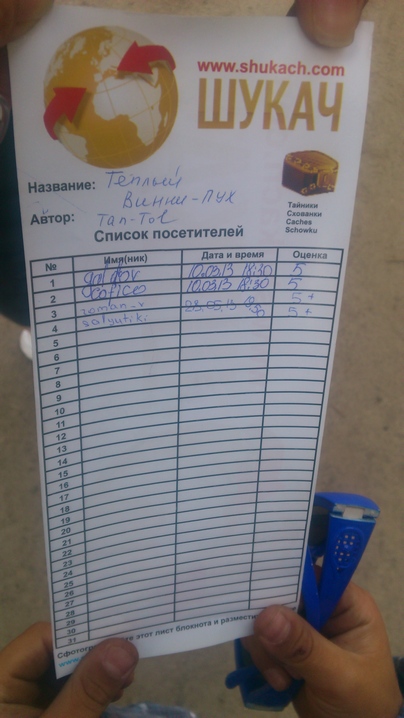 www.shukach.com
ШУКАЧ
Название: Тёплый
Винни-Пух
Автор: Tan-Tov
Тайники
Схованки
Caches
Schowku
Список посетителей
№ Имя(ник) Дата и время Оценка
1 10.03.13 18:30 5
2 10.03.13 18:30 5
3 roman-v 23.05.13 5+
4 salyutiki 5+
5
6
7
8
9
10
11
12
13
14
15
16
17
18
19
20
21
22
23
24
25
26
27
28
29
30
31
этот лист блокнота и размести